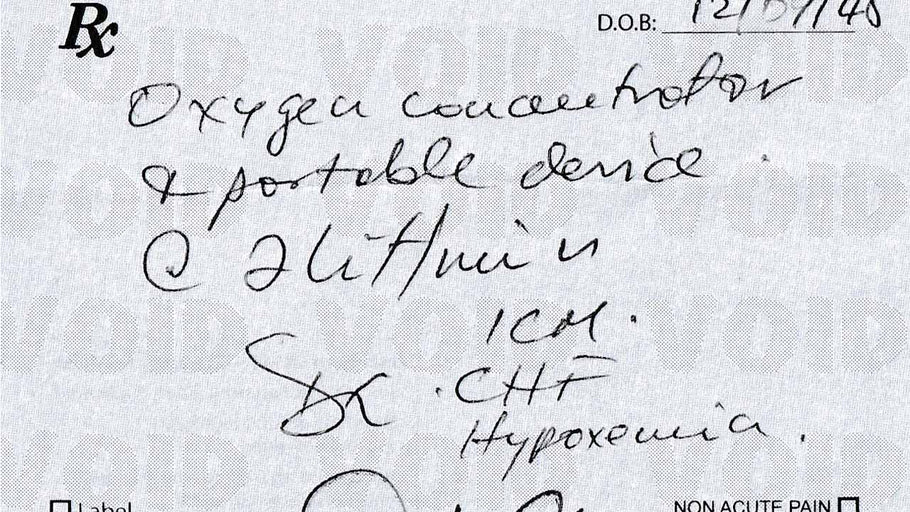 Rx D.O.B: 12/09/48
Oxygen concentrator
& portable device.
@ 2lit/min
ICM.
Dx . CHF
Hypoxemia.
Label NON ACUTE PAIN